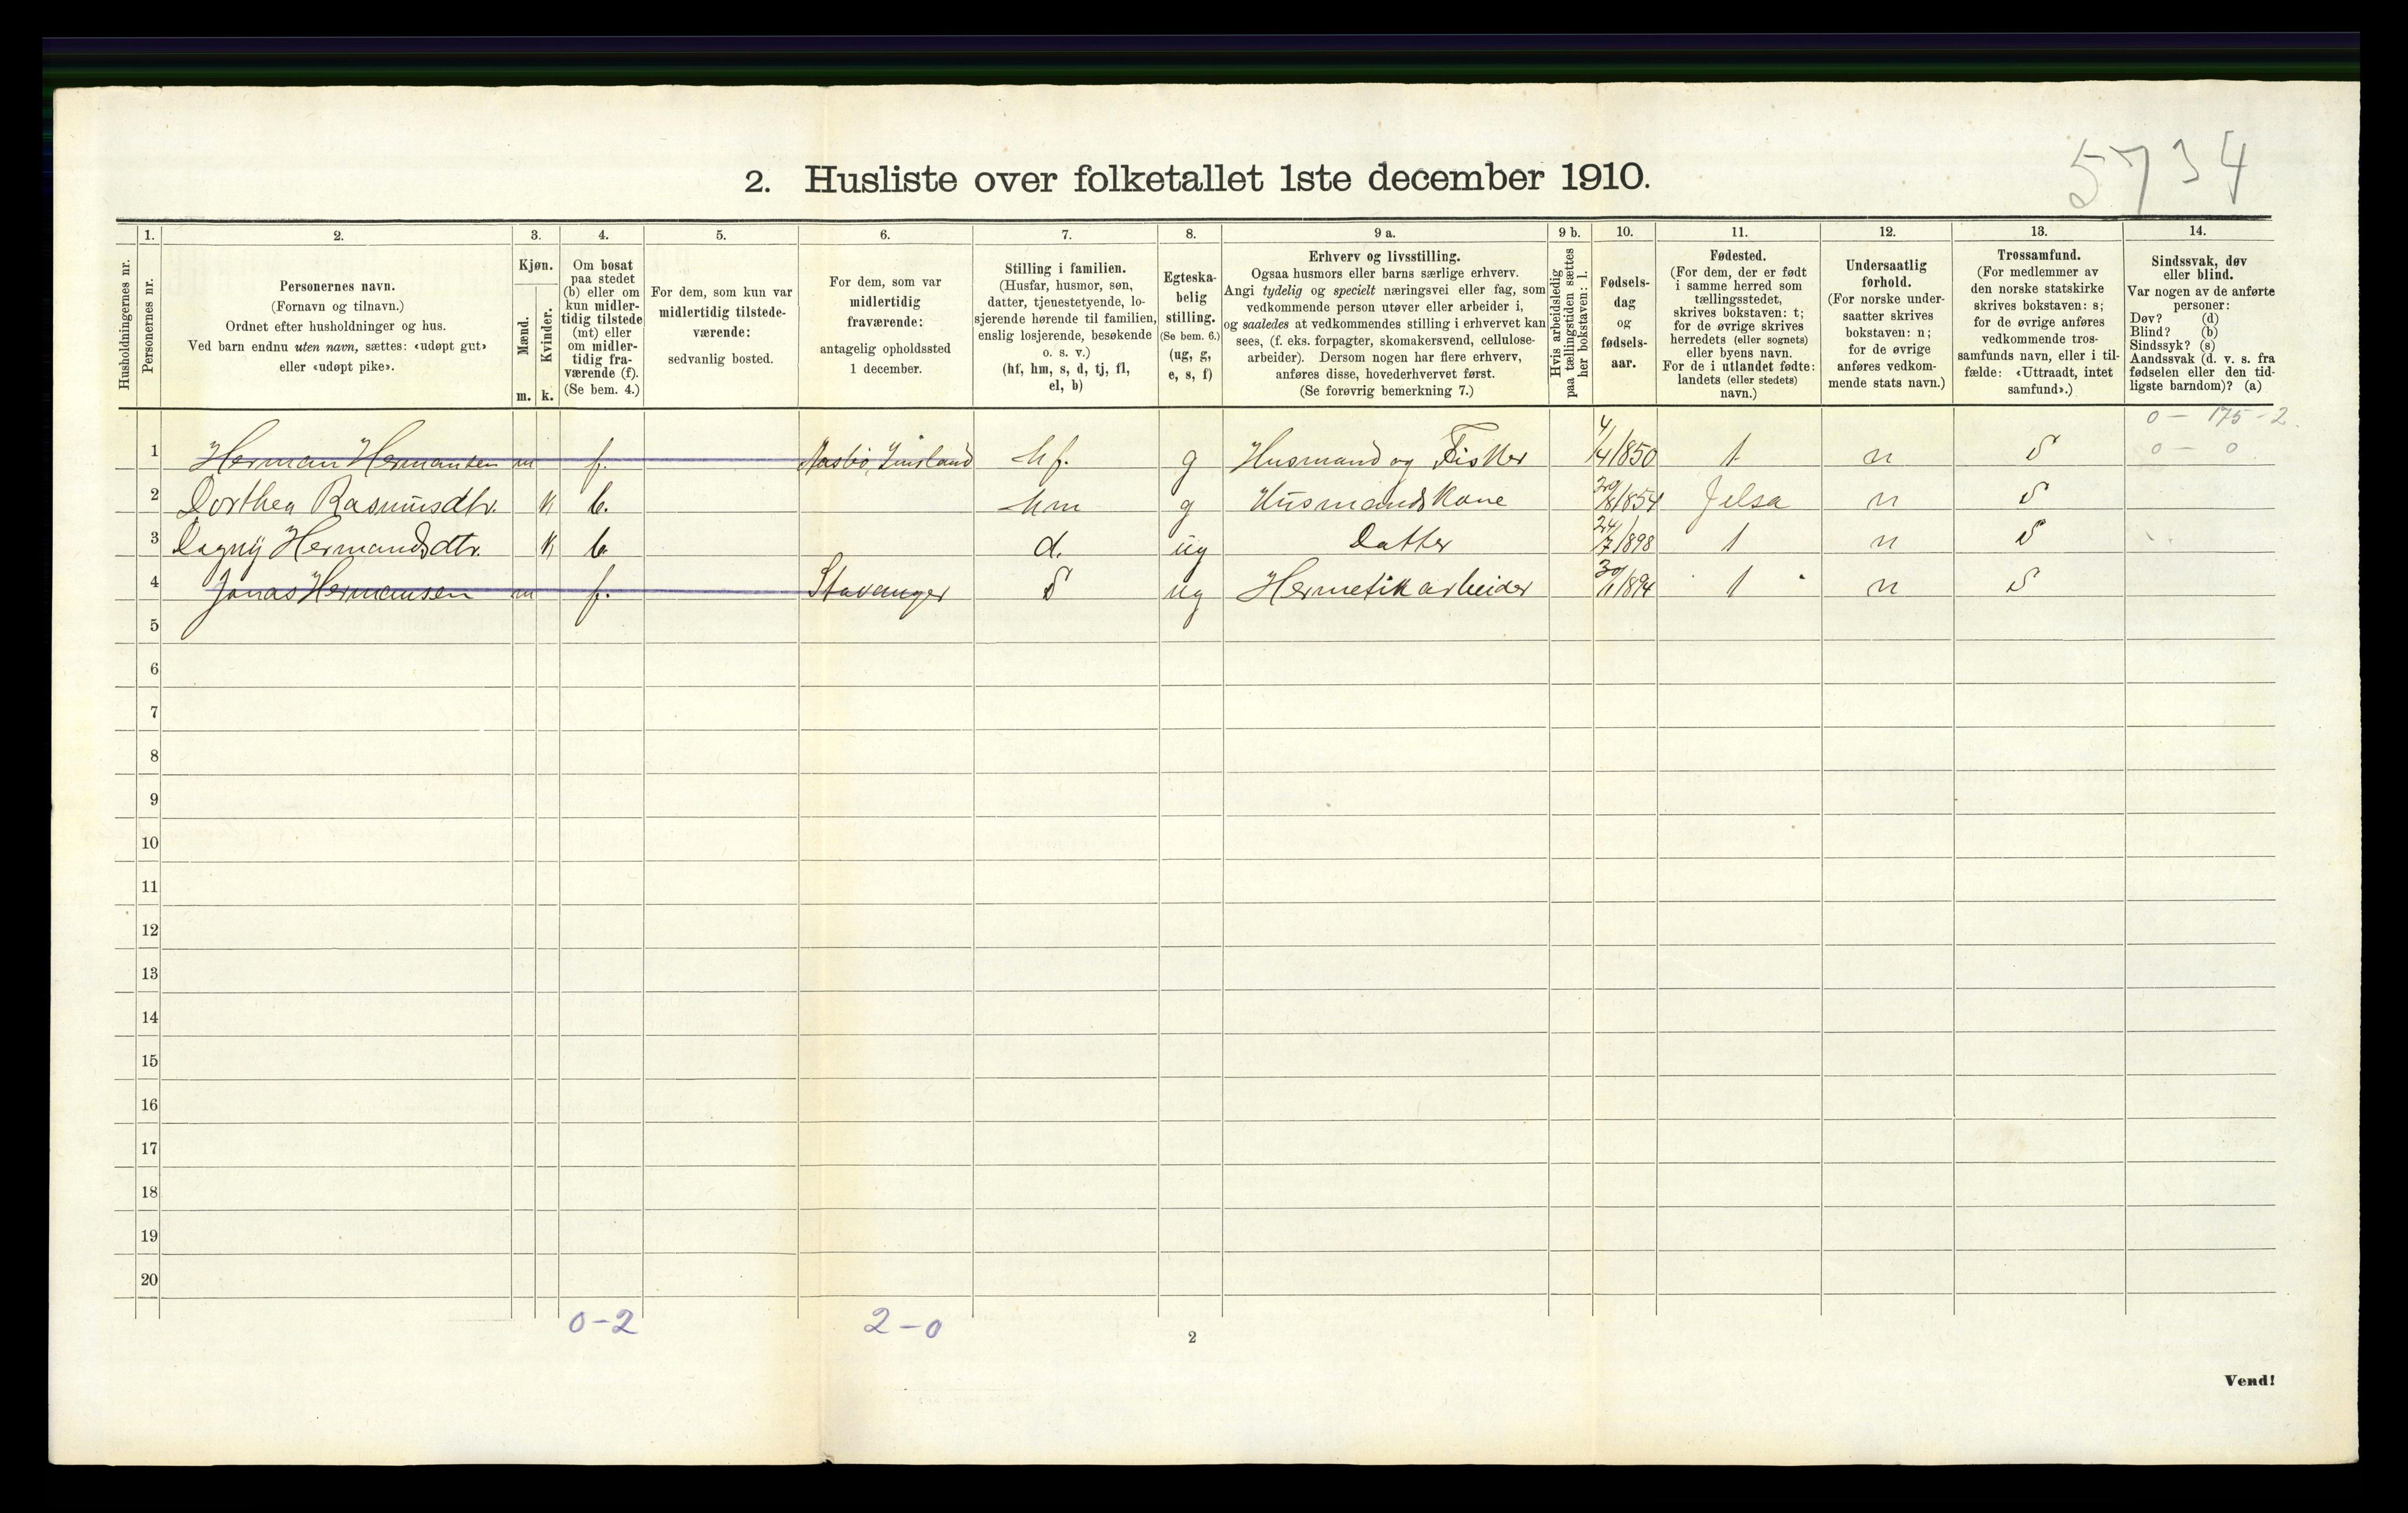 5734
2. Husliste over folketallet 1ste december 1910.
Husholdningernes nr.
1.
Personernes nr.
2.
Personernes navn.
(Fornavn og tilnavn.)
Ordnet efter husholdninger og hus.
Ved barn endnu uten navn, sættes: «udøpt gut»
eller «udøpt pike».
3.
Kjøn.
Mænd.
Kvinder.
m. k.
4.
Om bosat
paa stedet
(b) eller om
kun midler-
tidig tilstede
(mt) eller
om midler-
tidig fra-
værende (f).
(Se bem. 4.)
5.
For dem, som kun var
midlertidig tilstede-
værende:
sedvanlig bosted.
6.
For dem, som var
midlertidig
fraværende:
antagelig opholdssted
1 december.
7.
Stilling i familien.
(Husfar, husmor, søn,
datter, tjenestetyende, lo-
sjerende hørende til familien,
enslig losjerende, besøkende
o. s. v.)
(hf, hm, s, d, tj, fl,
el, b)
8.
Egteska-
belig
stilling.
(Se bem. 6.)
(ug, g,
e, s, f)
9 a.
Erhverv og livsstilling.
Ogsaa husmors eller barns særlige erhverv.
Angi tydelig og specielt næringsvei eller fag, som
vedkommende person utøver eller arbeider i,
og saaledes at vedkommendes stilling i erhvervet kan
sees, (f. eks. forpagter, skomakersvend, cellulose-
arbeider). Dersom nogen har flere erhverv,
anføres disse, hovederhvervet først.
(Se forøvrig bemerkning 7.)
9 b.
Hvis arbeidsledig
paa tællingstiden sættes
her bokstaven: l.
10.
Fødsels-
dag
og
fødsels-
aar.
11.
Fødested.
(For dem, der er født
i samme herred som
tællingsstedet,
skrives bokstaven: t;
for de øvrige skrives
herredets (eller sognets)
eller byens navn.
For de i utlandet fødte:
landets (eller stedets)
navn.)
12.
Undersaatlig
forhold.
(For norske under-
saatter skrives
bokstaven: n;
for de øvrige
anføres vedkom-
mende stats navn.)
13.
Trossamfund.
(For medlemmer av
den norske statskirke
skrives bokstaven: s;
for de øvrige anføres
vedkommende tros-
samfunds navn, eller i til-
fælde: «Uttraadt, intet
samfund».)
14.
Sindssvak, døv
eller blind.
Var nogen av de anførte
personer:
Døv? (d)
Blind? (b)
Sindssyk? (s)
Aandssvak (d. v. s. fra
fødselen eller den tid-
ligste barndom)? (a)
0 - 175 - 2.
1 Herman Hermansen m f. hf. g Husmand og Fisker 4/4 1850 t n S 0 - 0
2 Dorthea Rasmusdtr. k b. hm g Husmandskone 1854 Jelsa n S
3 Dagny Hermandsdtr. k b. d. ug Datter 24/7 1898 t n S
4 Jonas Hermansen m f. Stavanger S ug Hermetikarbeider 1894 t n S
5
6
7
8
9
10
11
12
13
14
15
16
17
18
19
20
0-2 2-0
2
Vend!